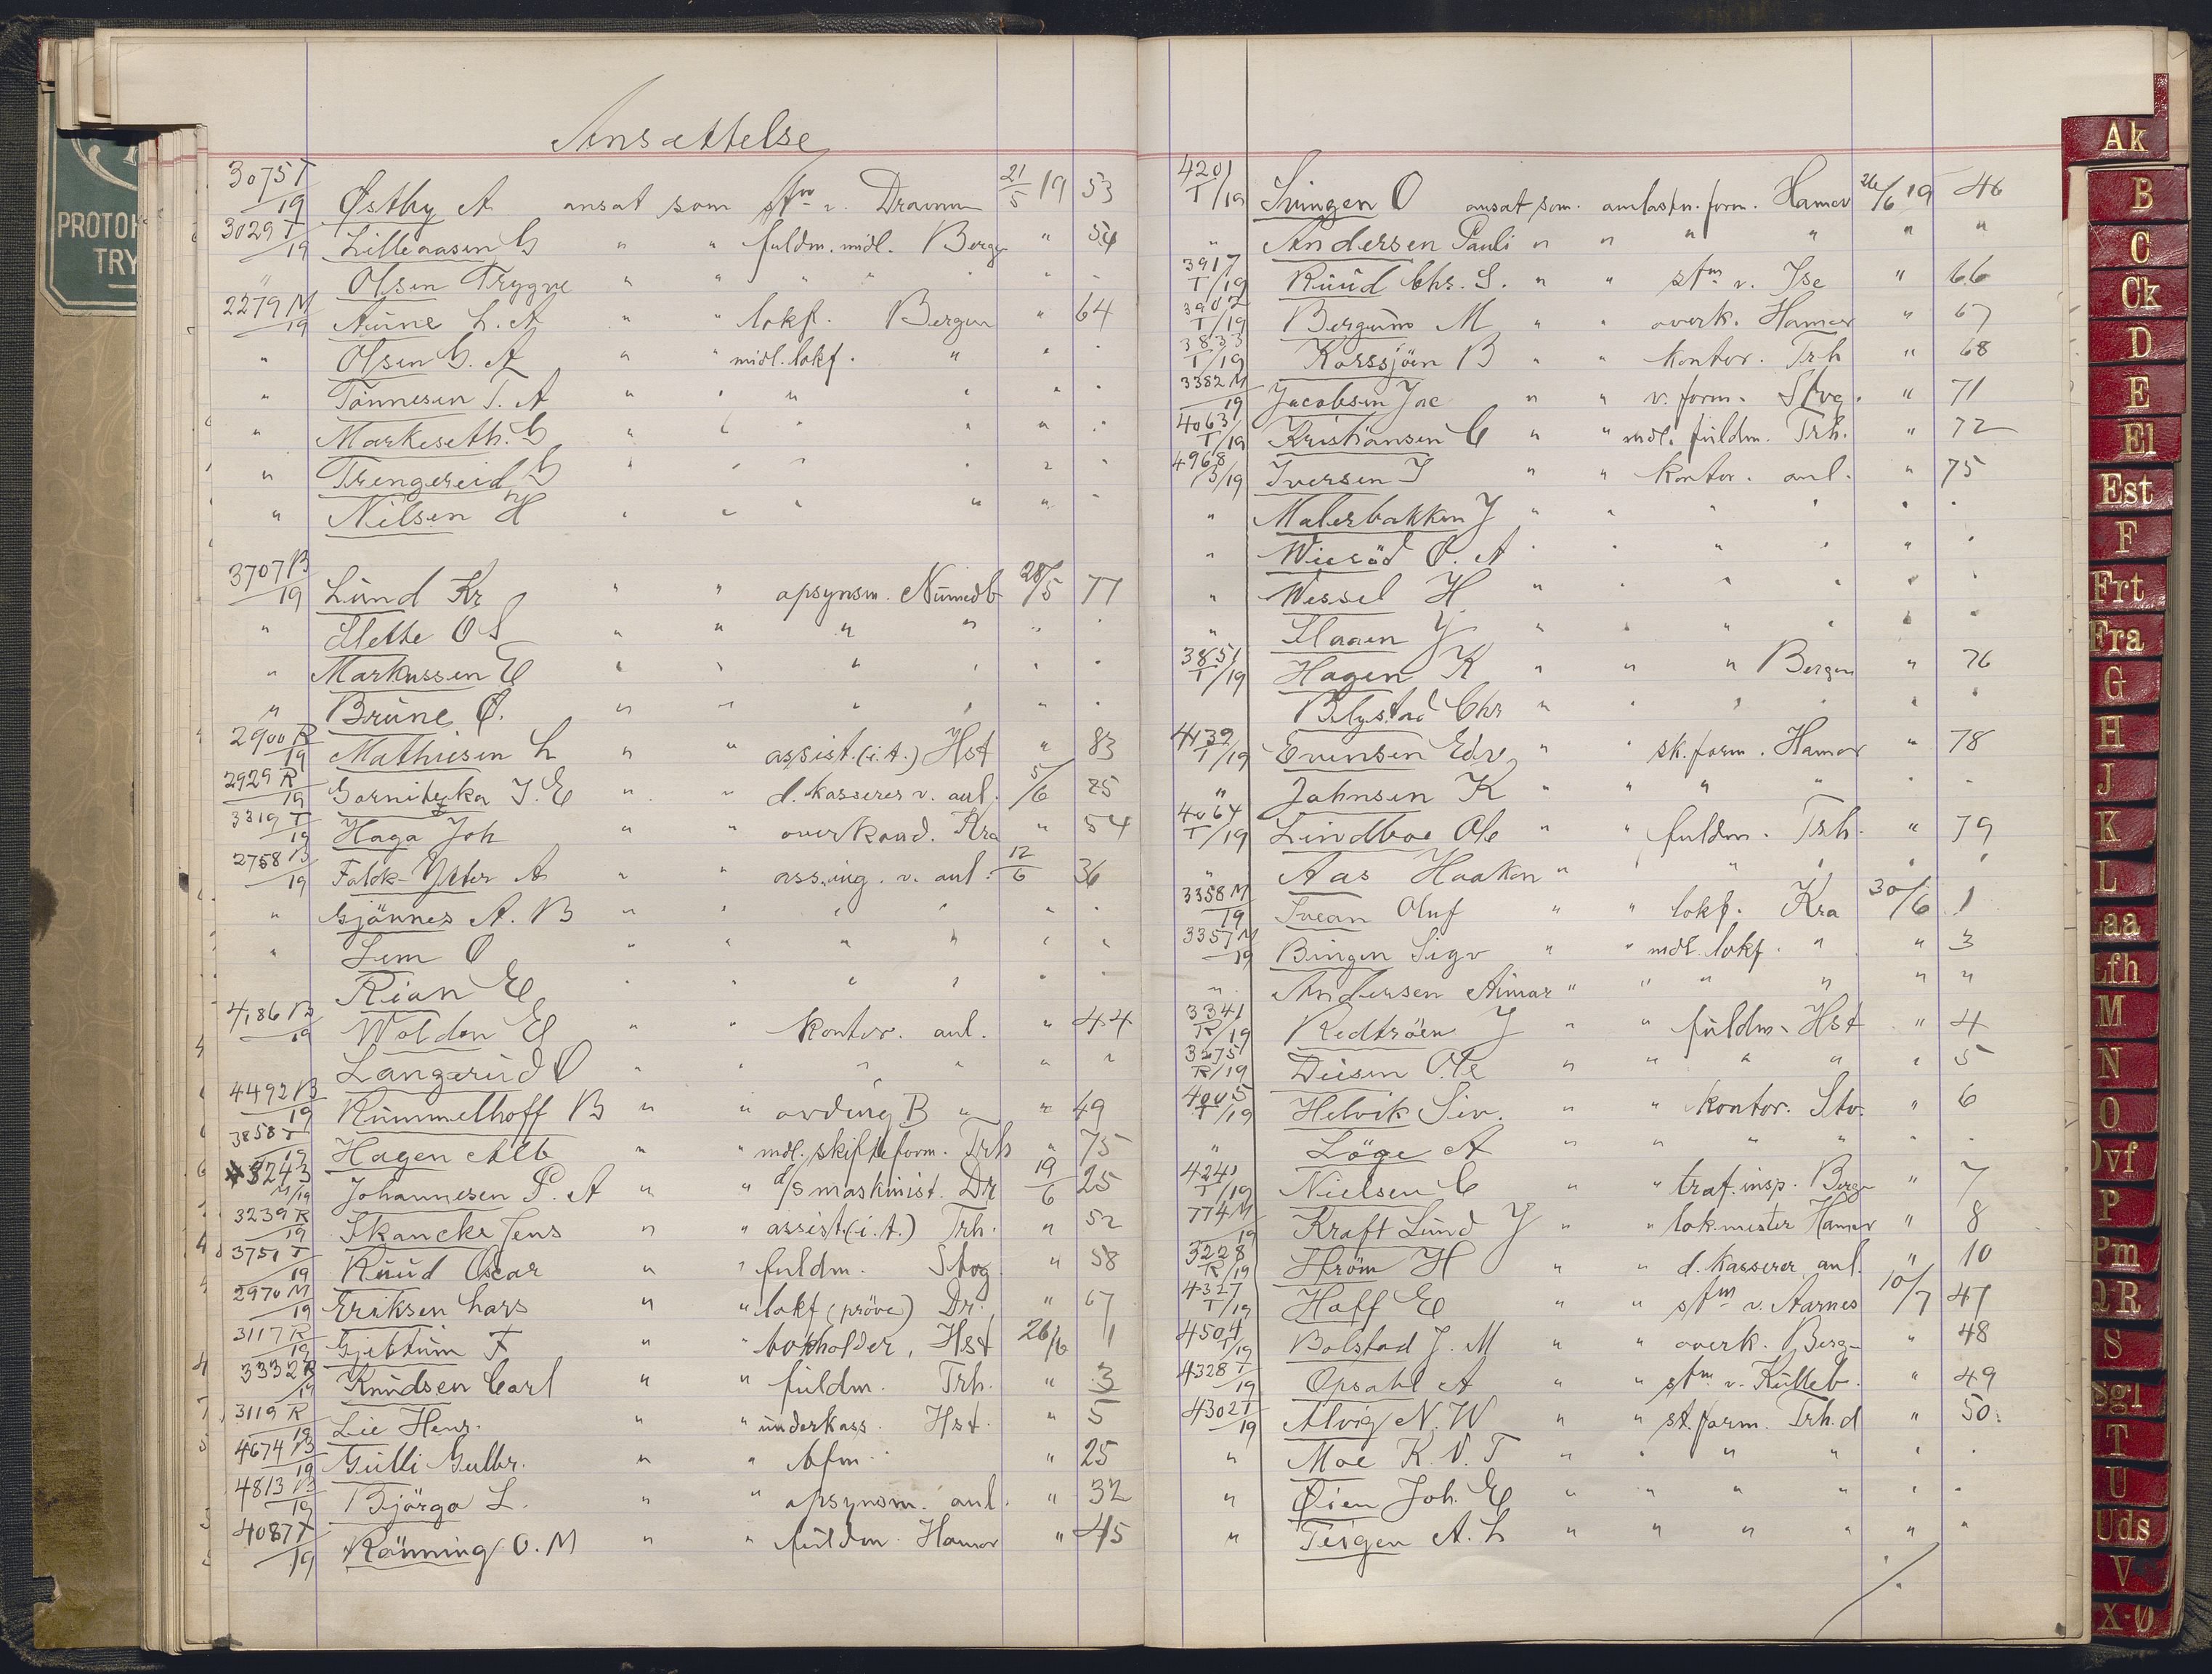 Ansættelse
3075 T/19 Østby A ansat som stm v. Dramm 21/5 19 53
3029 T/19 Lilleaasen G " " fuldm. midl. Berg " 54
" Olsen Trygve " " " " " "
2279 M/19 Aune L. A " " lokf. Bergen " 64
" Olsen G. A " " midl. lokf. " " "
" Tønnesen T. A " " " " " "
" Markeseth. G " " " " " "
" Trengereid G " " " " " "
" Nilsen H " " " " " "
3707 B/19 Lund Kr " " opsynsm. Numedb 28/5 77
" Slette O S " " " " " "
" Markussen E " " " " " "
" Brune O. " " " " " "
2900 R/19 Mathiesen L " " assist. (i.t.) Hst " 83
2929 R/19 Gornitzka J. E " " d. kasserer v. anl. 5/6 25
3319 T/19 Haga Joh " " overkond. Kra " 54
2758 B/19 Falck-Ytter A " " ass. ing. v. anl. 12/6 36
" Gjønnes A. B " " " " " "
" Lem O " " " " " "
Rian E " " " " " "
4186 B/19 Wolden E " " kontor. anl. " 44
Langerud O " " " " " "
4492 B/19 Rummelhoff B " " avding B " " 49
3858 T/19 Hagen Alb " " mdl. skifteform. Trh " 75
3243 M/19 Johannesen P. A " " d/s maskinist. Dr 19/6 25
3239 R/19 Skancke Jens " " assist (i.t.) Trh. " 52
3751 T/19 Ruud Oscar " " fuldm. Stvg " 58
2970 M/19 Eriksen Lars " " lokf (prøve) Dr. " 67
3117 R/19 Gjettum F " " bokholder, Hst 26/6 1
3332 R/19 Knudsen Carl " " fuldm. Trh. " 3
3119 R/19 Lie Henr. " " underkass. Hst. " 5
4674 B/19 Gulli Gulbr. " " bfm. " 25
4813 B/19 Bjørgo L. " " opsynsm. anl. " 32
4087 T/19 Rønning O. M " " fuldm. Hamar " 45
4201 T/19 Svingen O ansat som. form. Hamar 26/6 19 46
" Andersen Pauli " " " " " "
3917 T/19 Ruud Chr. S. " " stm v. Ise " 66
3902 T/19 Bergum M " " overk. Hamar " 67
3833 T/19 Korssjøen B " " kontor. Trh " 68
3382 M/19 Jacobsen Jac " " v. form. Stvg. " 71
4063 T/19 Kristiansen C " " mdl. fuldm. Trh. " 72
4968 B/19 Iversen I " " kontor. anl. " 75
" Malerbakken J " " " " " "
" Wiesød O. A " " " " " "
" Wessel H " " " " " "
" Haaen J " " " " " "
3851 T/19 Hagen K " " " Bergen " 76
Blystad Chr " " " " " "
4139 T/19 Evensen Edv. " " sk. form. Hamar " 78
" Johnsen K " " " " " "
4064 T/19 Lindboe Ole " " fuldm. Trh. " 79
" Aas Haakon " " " " " "
3358 M/19 Svean Oluf " " lokf. Kra 30/6 1
3357 M/19 Bingen Sigv " " mdl. lokf. " " 3
" Andersen Aimar " " " " " "
3341 R/19 Redtrøen J " " fuldm. Hst " 4
3275 R/19 Diesen Ole " " " " " 5
4005 T/19 Helvik Siv. " " kontor. Stv. " 6
" Løge A " " " " " "
4241 T/19 Nielsen C " " traf. insp. Berg " 7
774 M/19 Kraft Lund J " " lok.mester Hamar " 8
3228 R/19 Strøm H " " d. kasserer anl. " 10
4327 T/19 Hoff E " " stm v. Aarnes 10/7 47
4504 T/19 Bolstad J. M " " overk. Berg " 48
4328 T/19 Opsahl A " " stm. v. Kulleb. " 49
4302 T/19 Alvig N. W " " st. form. Trh.d " 50.
" Moe K. N. T " " " " " "
" Øien Joh. E " " " " " "
" Teigen A. L " " " " " "
PROTOK
TRY
Ak
B
C
Ck
D
E
El
Est
F
Frt
Fra
G
H
J
K
L
Laa
Lfh
M
N
O
Ovf
P
Pm
QR
S
Sgl
T
U
Uds
V
X-Ø